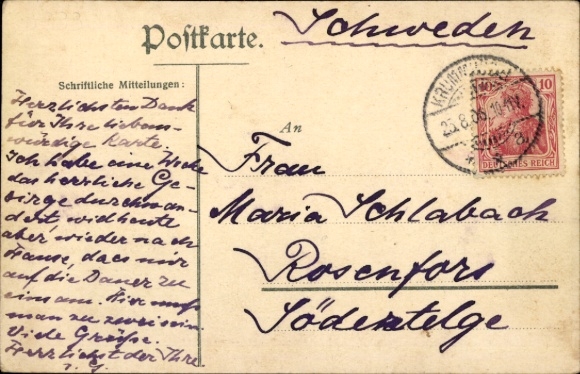 Schweden
Postkarte.
Schriftliche Mitteilungen:
Herzlichsten Dank
für Ihre liebens-
würdige Karte.
Ich habe eine Woche
das herrliche Ge-
birge durchwan-
dert, will heute
aber wieder nach
Hause, da es mir
auf die Dauer zu
einsam. Hier muß
man zu zwei sein.
Viele Grüße.
Herzlichst der Ihre
An
Frau
Maria Schlabach
Rosenfors
Södertelge
KRUMM
10 10
DEUTSCHES REICH